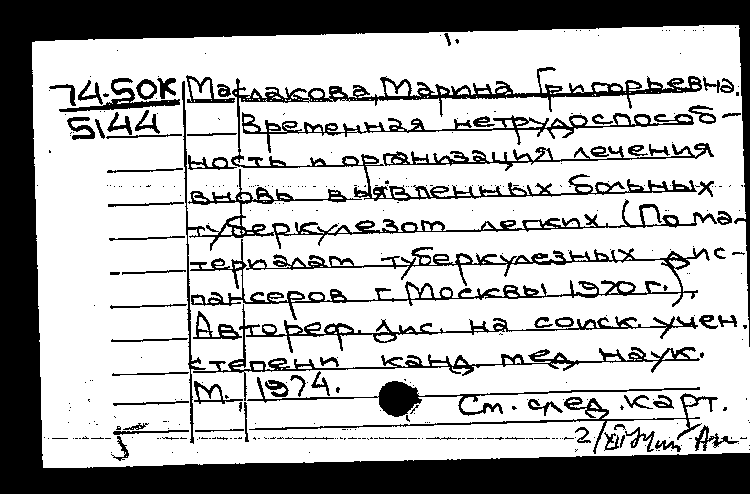 1.
74-50К Маслакова, Марина Григорьевна.
5144 Временная нетрудоспособ-
ность и организация лечения
вновь выявленных больных
туберкулезом легких. (По ма-
териалам туберкулезных дис-
пансеров г. Москвы 1970 г.).
Автореф. дис. на соиск. учен.
степени канд. мед. наук.
М., 1974.
См. след. карт.
5
2/XII